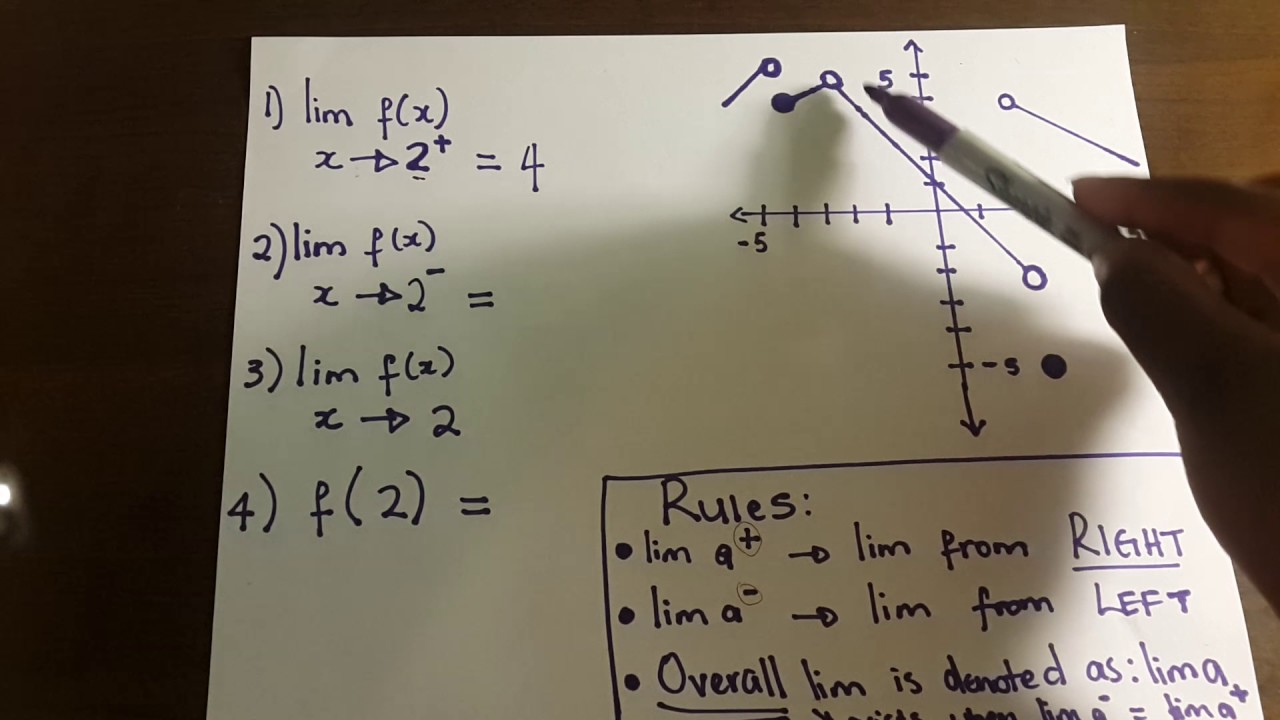 1) lim f(x)
x → 2⁺ = 4
2) lim f(x)
x → 2⁻ =
3) lim f(x)
x → 2
4) f(2) =
5
-5
-5
Rules:
• lim a⁺ → lim from RIGHT
• lim a⁻ → lim from LEFT
• Overall lim is denoted as: lim a
exists when lim a⁻ = lim a⁺